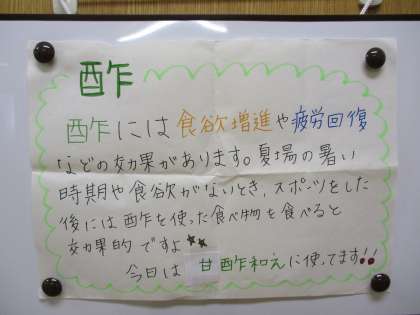 酢
酢には食欲増進や疲労回復
などの効果があります。夏場の暑い
時期や食欲がないとき、スポーツをした
後には酢を使った食べ物を食べると
効果的ですよ★★
今日は 甘酢和えに使ってます!!